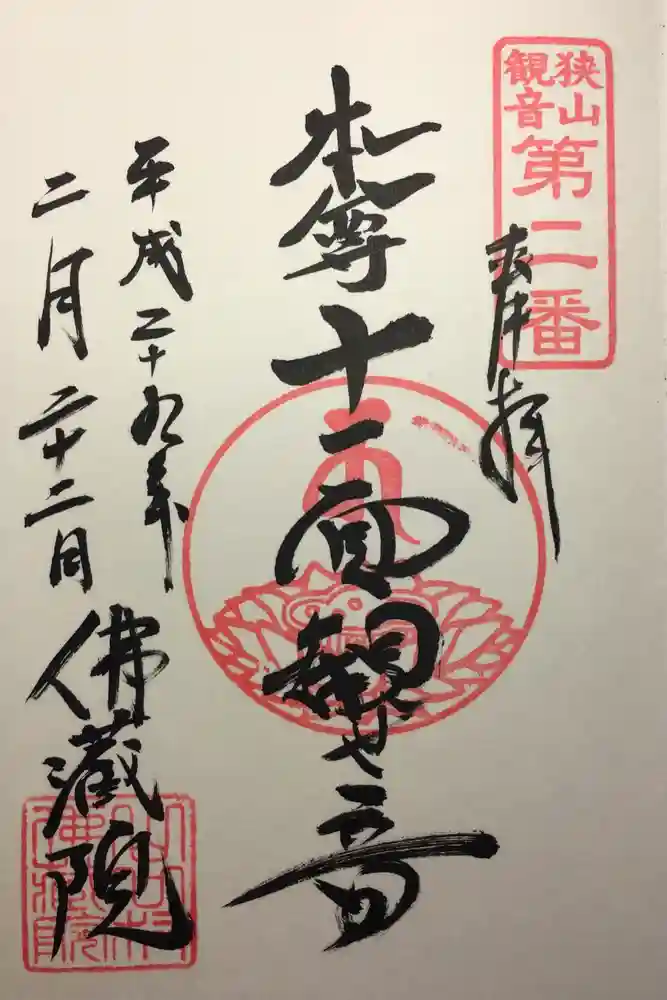 狭山
観音
第二番
奉拝
本尊十一面観世音
平成二十九年
二月二十二日
佛蔵院